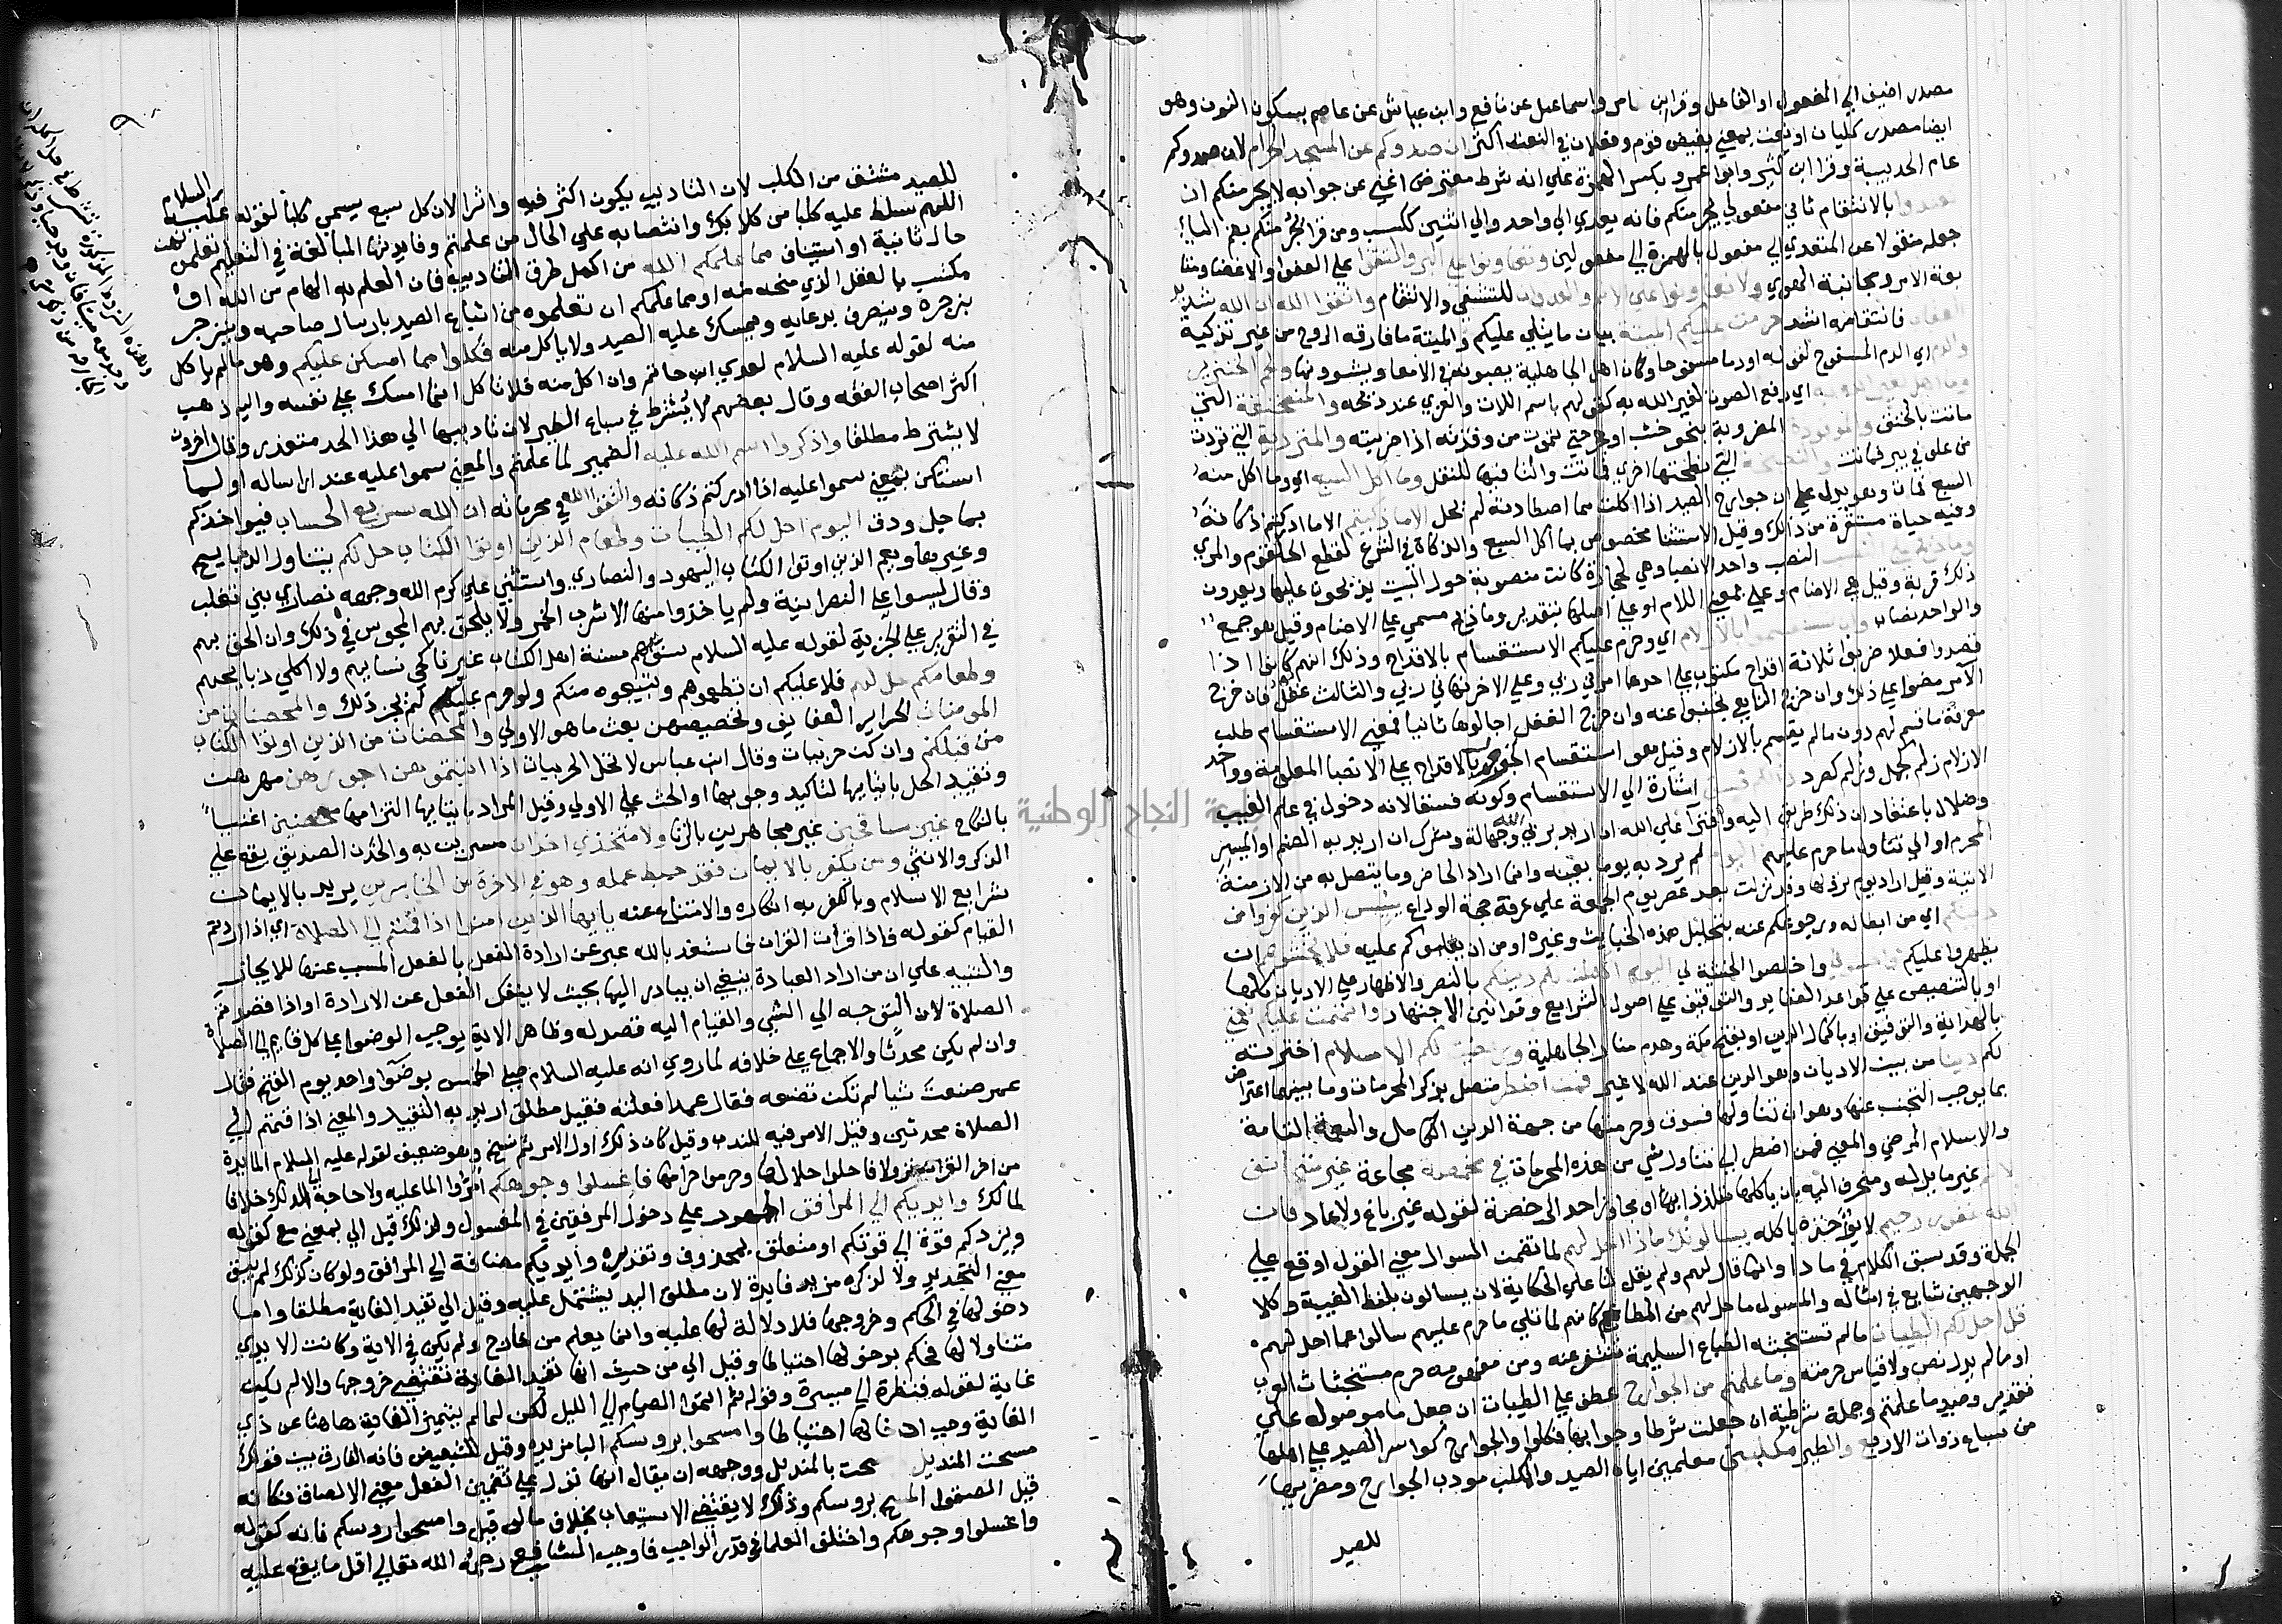 مصدر اضيف الي المفعول او الفاعل وقرا ابن عامر واسماعيل عن نافع وابن عياش عن عاصم بسكون النون وهو
ايضا مصدر كليان او نعت بمعني بغيض قوم وفعلان في النعت اكثر ان صدوكم عن المسجد الحرام لان صدوكم
عام الحديبية وقرا ابن كثير وابو عمرو بكسر الهمزة علي انه شرط معترض اغني عن جوابه لا يجرمنكم ان
تعتدوا بالانتقام ثاني مفعولي يجرمنكم فانه يعدي الي واحد والي اثنين ككسب ومن قرا يجرمنكم بضم الياء
جعله منقولا عن المتعدي الي مفعول بالهمزة الي مفعولين وتعاونوا علي البر والتقوا علي العفو والاغضا ومتا
بعة الامر ومجانبة الهوي ولا تعاونوا علي الاثم والعدوان للتشفي والانتقام واتقوا الله ان الله شديد
العقاب فانتقامه اشد حرمت عليكم الميتة بيان ما يتلي عليكم والميتة ما فارقه الروح من غير تذكية
والدم اي الدم المسفوح لقوله او دما مسفوحا وكان اهل الجاهلية يصبونه في الامعا ويشوونها ولحم الخنزير
وما اهل لغير الله به اي رفع الصوت لغير الله به كقولهم باسم اللات والعزي عند ذبحه والمنخنقة التي
ماتت بالخنق والموقوذة المضروبة بنحو خشب او حجر حتي تموت من وقذته اذا ضربته والمتردية التي تردت
من علي في بير فماتت والنطيحة التي نطحتها اخري فماتت والتا فيها للنقل وما اكل السبع اي وما اكل منه
السبع فمات وهو يدل علي ان جوارح الصيد اذا اكلت مما اصطادته لم تحل الا ما ذكيتم الا ما ادركتم ذكاته
وفيه حياة مستقرة من ذلك وقيل الاستثنا مخصوص بما اكل السبع والذكاة في الشرع لقطع الحلقوم والمري
وما ذبح علي النصب النصب واحد الانصاب وهي حجارة كانت منصوبة حول البيت يذبحون عليها ويعدون
ذلك قربة وقيل هي الاصنام وعلي بمعني اللام او علي اصلها بتقدير وما ذبح مسمي علي الاصنام وقيل هو جمع
والواحد نصاب وان تستقسموا بالازلام اي وحرم عليكم الاستقسام بالاقداح وذلك انهم كانوا اذا
قصدوا فعلا ضربوا ثلاثة اقداح مكتوب علي احدها امرني ربي وعلي الاخر نهاني ربي والثالث غفل فان خرج
الآمر مضوا علي ذلك وان خرج الناهي تجنبوا عنه وان خرج الغفل اجالوها ثانيا فمعني الاستقسام طلب
معرفة ما قسم لهم دون ما لم يقسم بالازلام وقيل هو استقسام الجزور بالاقداح علي الانصبا المعلومة وواحد
الازلام زلم كجمل وزلم كصرد ذلكم فسق اشارة الي الاستقسام وكونه فسقا لانه دخول في علم الغيب
وضلال باعتقاد ان ذلك طريق اليه وافترآ علي الله ان اريد بربي الله وجهالة وشرك ان اريد به الصنم او الميسر
المحرم او الي تناول ما حرم عليهم اليوم لم يرد به يوما بعينه وانما اراد الحاضر وما يتصل به من الازمنة
الاتية وقيل اراد يوم نزولها وقد نزلت بعد عصر يوم الجمعة علي عرفة حجة الوداع ييئس الذين كفروا من
دينكم اي من ابطاله ورجوعكم عنه بتحليل هذه الخبايث وغيره او من ان يغلبوكم عليه فلا تخشوهم ان
يظهروا عليكم واخشوني واخلصوا الخشية لي اليوم اكملت لكم دينكم بالنصر والاظهار علي الاديان كلها
او بالتنصيص علي قواعد العقايد والتوقيف علي اصول الشرايع وقوانين الاجتهاد واتممت عليكم نعمتي
بالهداية والتوفيق او باكمال الدين او بفتح مكة وهدم منار الجاهلية ورضيت لكم الاسلام اخترته
لكم دينا من بين الاديان وهو الدين عند الله لا غير فمن اضطر متصل بذكر المحرمات وما بينهما اعتراض
بما يوجب التجنب عنها وهو ان تناولها فسوق وحرمتها من جهة الدين الكامل والنعمة التامة
والاسلام المرضي والمعني فمن اضطر الي تناول شي من هذه المحرمات في مخمصة مجاعة غير متجانف
لاثم غير مايل له ومنحرف اليه بان ياكلها تلذذا بها او مجاوزا حد الرخصة لقوله غير باغ ولا عاد فان
الله غفور رحيم لا يؤخذه باكله يسالونك ماذا احل لهم لما تضمن السوال معني القول اوقع علي
الجملة وقد سبق الكلام في ماذا وانما قال لهم ولم يقل لنا علي الحكاية لان يسالون بلفظ الغيبة وكلا
الوجهين شايع في امثاله والمسول ما حل لهم من المطاعم كانهم لما تلي ما حرم عليهم سالوا عما احل لهم
قل احل لكم الطيبات ما لم تستخبثه الطباع السليمة تتنفر عنه ومن مفهومه حرم مستخبثات العرب
او ما لم يدل نص ولا قياس حرمته وما علمتم من الجوارح عطف علي الطيبات ان جعل ما موصوله علي
تقدير وصيد ما علمتم وجملة شرطية ان جعلت شرطا وجوابها فكلوا والجوارح كواسر الصيد علي اهلها
من سباع ذوات الاربع والطير مكلبين معلمين اياه الصيد والمكلب مودب الجوارح ومضريها
للصيد
للصيد مشتق من الكلب لان التاديب يكون اكثر فيه واثرا لان كل سبع يسمي كلبا لقوله عليه السلام
اللهم سلط عليه كلبا من كلابك وانتصابه علي الحال من علمتم وفايدتها المبالغة في التعليم تعلمونهن
حال ثانية او استيناف مما علمكم الله من اكمل طرق التاديب فان العلم به الهام من الله او
مكتسب بالعقل الذي منحه منه او مما علمكم ان تعلموه من اتباع الصيد بارسال صاحبه وينزجر
بزجره وينصرف بدعايه ويمسك عليه الصيد ولا ياكل منه فكلوا مما امسكن عليكم وهو ما لم ياكل
منه لقوله عليه السلام لعدي ابن حاتم وان اكل منه فلا تاكل انما امسك علي نفسه واليه ذهب
اكثر اصحاب الفقه وقال بعضهم لا يشترط في سباع الطير لان تاديبها الي هذا الحد متعذر وقال اخرون
لا يشترط مطلقا واذكروا اسم الله عليه الضمير لما علمتم والمعني سموا عليه عند ارساله او لما
امسكن بمعني سموا عليه اذا ادركتم ذكاته واتقوا الله في محرماته ان الله سريع الحساب فيواخذكم
بما جل ودق اليوم احل لكم الطيبات وطعام الذين اوتوا الكتاب حل لكم يتناول الذبايح
وغيرها ويعم الذين اوتوا الكتاب اليهود والنصاري واستثني علي كرم الله وجهه نصاري بني تغلب
وقال ليسوا علي النصرانية ولم ياخذوا منها الا شرب الخمر ولا يلحق بهم المجوس في ذلك وان الحق بهم
في التقرير علي الجزية لقوله عليه السلام سنوا بهم سنة اهل الكتاب غير ناكحي نسايهم ولا اكلي ذبايحهم
وطعامكم حل لهم فلا عليكم ان تطعموهم وتبيعوه منكم ولو حرم عليكم لم يجز ذلك والمحصنات من
المومنات الحراير العفايف وتخصيصهن بعث ما هو الاولي والمحصنات من الذين اوتوا الكتاب
من قبلكم وان كن حربيات وقال ابن عباس لا تحل الحربيات اذا اتيتموهن اجورهن مهرهن
وتقييد الحل بايتايها لتاكيد وجوبها او الحث علي الاولي وقيل المراد بايتايها التزامها محصنين اعفاء
بالنكاح غير مسافحين غير مجاهرين بالزنا ولا متخذي اخدان مسرين به والخدن الصديق يقع علي
الذكر والانثي ومن يكفر بالايمان فقد حبط عمله وهو في الاخرة من الخاسرين يريد بالايمان
شرايع الاسلام وبالكفر به انكاره والامتناع عنه يايها الذين امنوا اذا قمتم الي الصلاة اي اذا اردتم
القيام كقوله فاذا قرات القران فاستعذ بالله عبر عن ارادة الفعل بالفعل المسبب عنها للايجاز
والتنبيه علي ان من اراد العبادة ينبغي ان يبادر اليها بحيث لا ينفك الفعل عن الارادة او اذا قصدتم
الصلاة لان التوجه الي الشي والقيام اليه قصد له وظاهر الاية يوجب الوضوا علي كل قايم الي الصلاة
وان لم يكن محدثا والاجماع علي خلافه لما روي انه عليه السلام صلي الخمس بوضوا واحد يوم الفتح فقال
عمر صنعت شيا لم تكن تصنعه فقال عمدا فعلته فقيل مطلق اريد به التقييد والمعني اذا قمتم الي
الصلاة محدثين وقيل الامر فيه للندب وقيل كان ذلك اول الامر ثم نسخ وهو ضعيف لقوله عليه السلام المايدة
من اخر القران نزولا فاحلوا حلالها وحرموا حرامها فاغسلوا وجوهكم امروا الما عليه ولا حاجة الي الدلك خلافا
لمالك وايديكم الي المرافق الجمهور علي دخول المرفقين في المغسول ولذلك قيل الي بمعني مع كقوله
ويزدكم قوة الي قوتكم او متعلق بمحذوف وتقديره وايديكم مضافة الي المرافق ولو كان كذلك لم يبق
معني التحديد ولا لذكره مزيد فايدة لان مطلق اليد يشتمل عليه وقيل الي تفيد الغاية مطلقا واما
دخولها في الحكم وخروجها فلا دلالة لها عليه وانما يعلم من خارج ولم يكن في الاية وكانت الايدي
متناولا لها فحكم بدخولها احتياطا وقيل الي من حيث انها تفيد الغاية تقتضي خروجها والا لم يكن
غاية لقوله فنظرة الي ميسرة وقوله ثم اتموا الصيام الي الليل لكن لما لم يتميز الغاية هاهنا عن ذي
الغاية وجب ادخالها احتياطا وامسحوا بروسكم البا مزيدة وقيل للتبعيض فانه الفارق بين قولك
مسحت المنديل ومسحت بالمنديل ووجهه ان يقال انها تدل علي تضمين الفعل معني الالصاق فكانه
قيل الصقوا المسح بروسكم وذلك لا يقتضي الاستيعاب بخلاف ما لو قيل وامسحوا روسكم فانه كقوله
واغسلوا وجوهكم واختلف العلما في قدر الواجب فاوجب الشافعي رحمه الله تعالي اقل ما يقع عليه
النجاح الوطنية